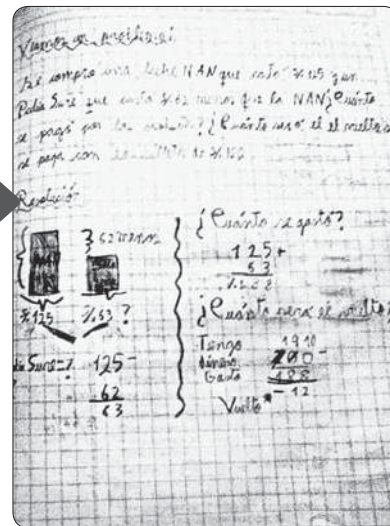 Veamos un problema:
Se compró una leche NAN que costó S/.125 y un
Pedia Sure que costó S/.62 menos que la NAN ¿Cuánto
se pagó por los productos? ¿Cuánto será el el vuelto si
se paga con
Resolución
62 menos
S/.125 S/.63 ?
dia Sure = ? 125 -
62
63
¿Cuánto se gastó?
125 +
63
¿Cuánto será el vuelto?
Tengo 1 9 10
dinero 200 -
Gasto 188
Vuelto - 12